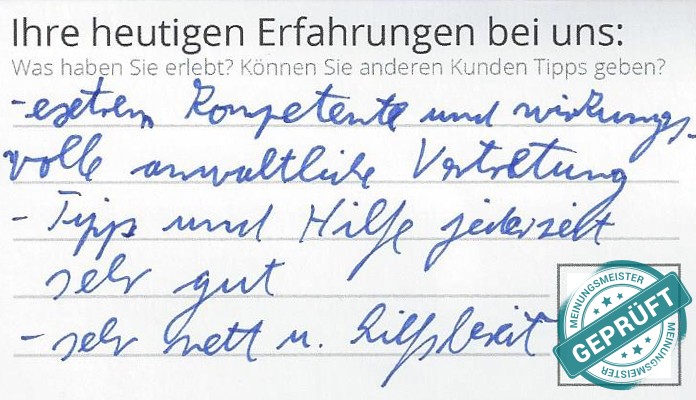 Ihre heutigen Erfahrungen bei uns:
Was haben Sie erlebt? Können Sie anderen Kunden Tipps geben?
- extrem kompetente und wirkungs-
volle anwaltliche Vertretung
- Tipps und Hilfe jederzeit
sehr gut
- sehr nett u. hilfsbereit
MEINUNGSMEISTER
GEPRÜFT
MEINUNGSMEISTER